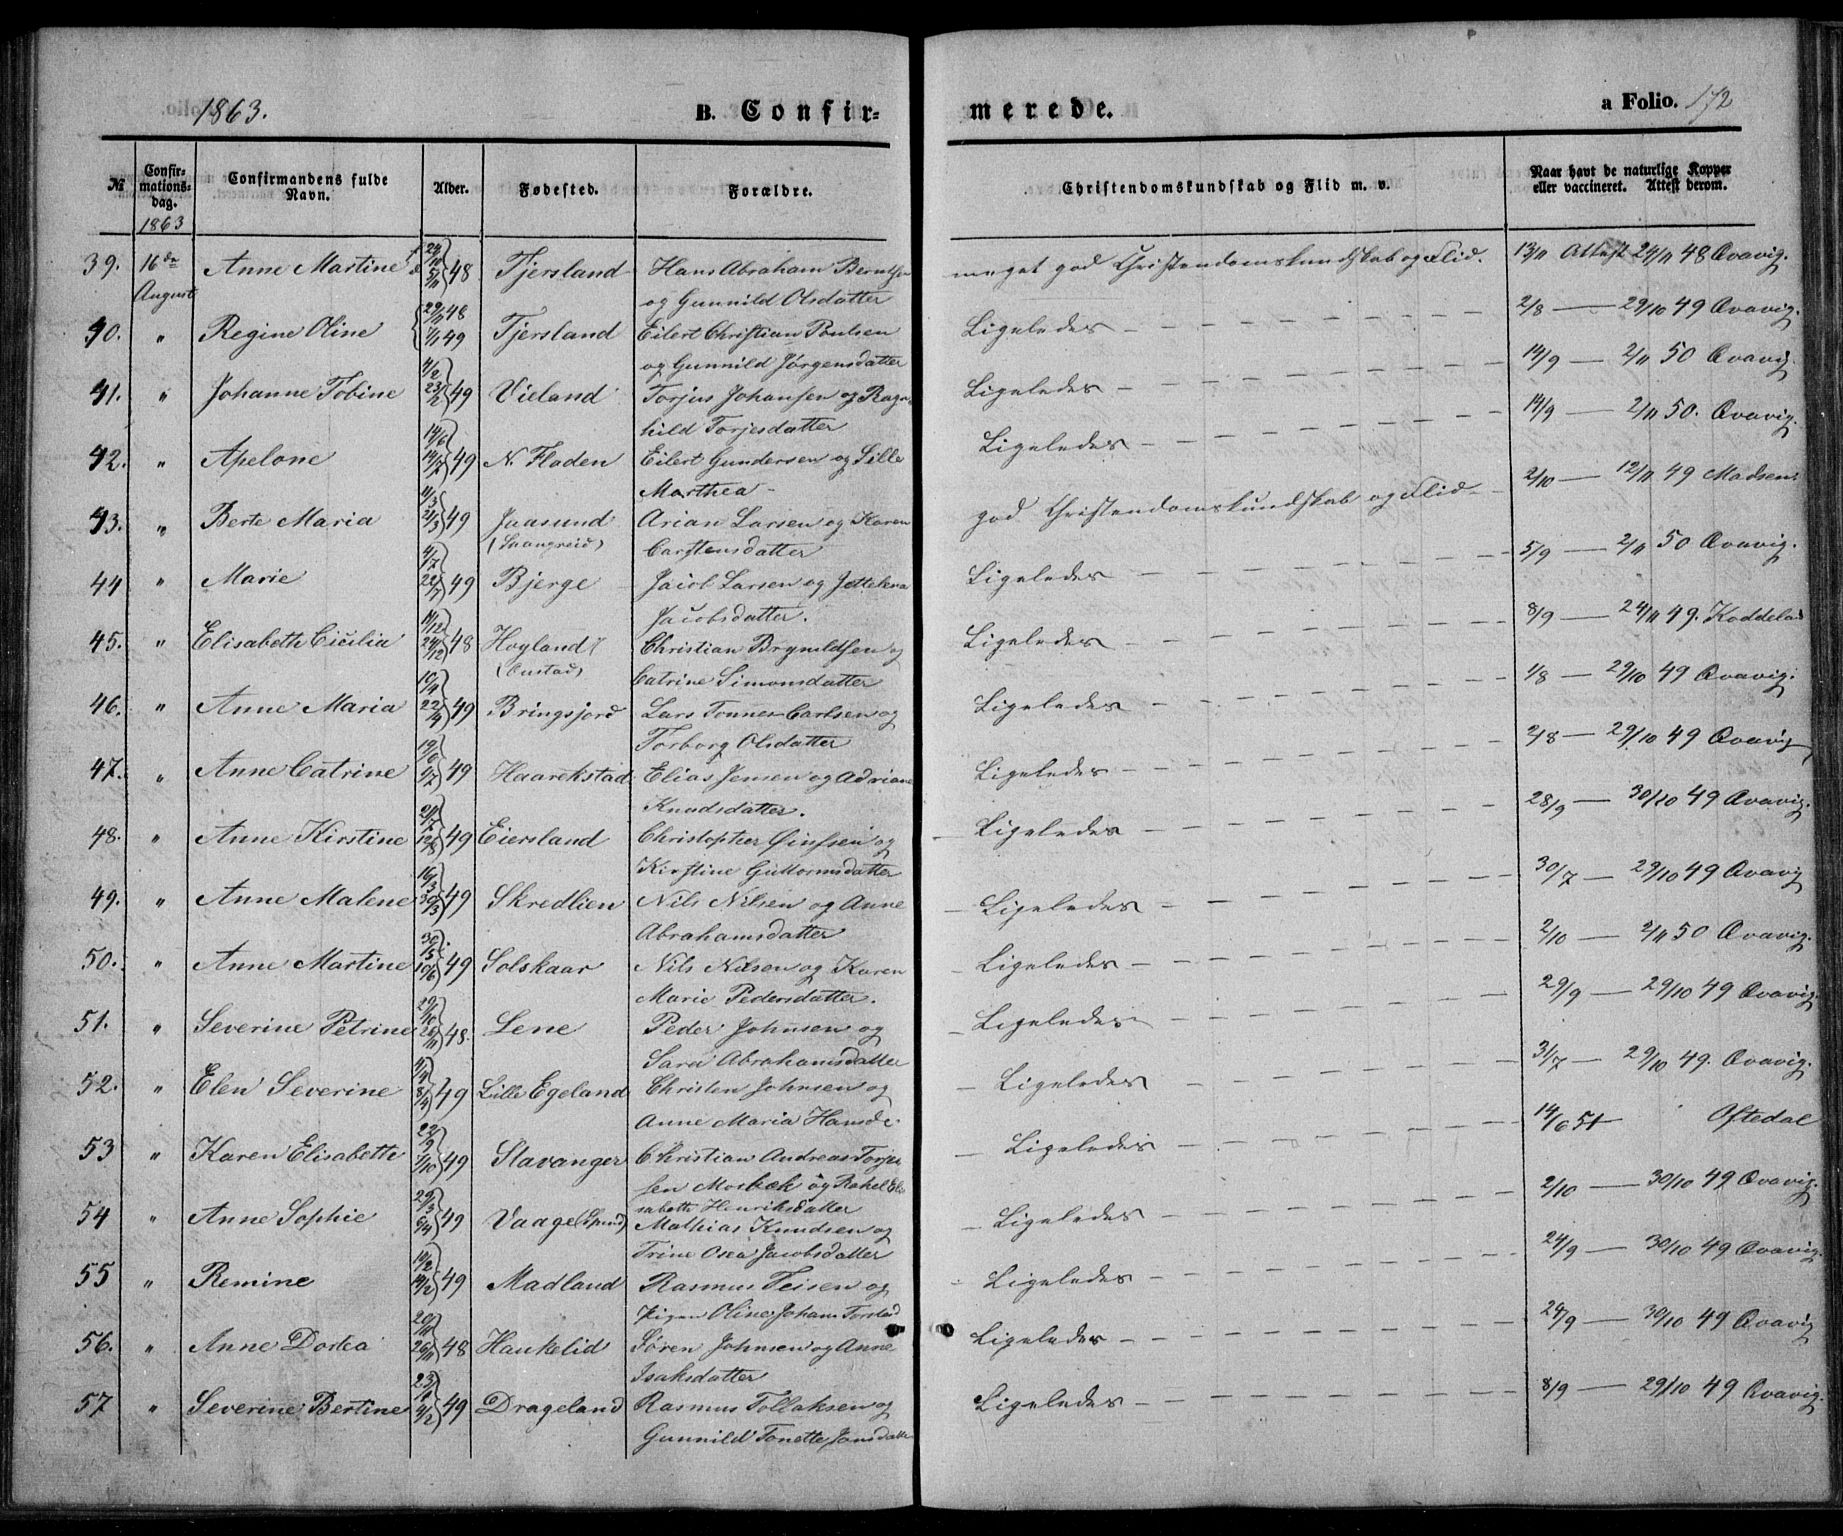 1863. B. Confirmerede. a Folio. 172
№ Confirmationsdag. Confirmandens fulde Navn. Alder. Fødested. Forældre. Christendomskundskab og Flid m. v. Naar havt de naturlige Kopper eller vaccineret. Attest derom.
1863
39. 16de August Anne Martine 48 Tjersland Hans Abraham Berntsen meget god Christendomskundskab og Flid. 13/11 Attest 24/11 48 Qvavig.
og Gunnild Olsdatter
40. " Regine Oline 29/12 48 1/1 49 Tjersland Eilert Christian Poulsen Ligeledes 2/8 — 29/10 49 Qvavig.
og Gunnild Jørgensdatter
41. " Johanne Tobine 4/2 23/2 49 Vieland Torjus Johansen og Ragn Ligeledes 14/9 — 2/11 50 Qvavig.
hild Torjesdatter
42. " Apelone 14/6 49 N. Fladen Eilert Gundersen og Sille Ligeledes 14/9 — 2/11 50. Qvavig.
Marthea
43. " Berte Maria 11/3 21/3 49 Jaasund Arian Larsen og Karen god Christendomskundskab og Flid 2/10 — 12/11 49 Madsen.
Carstensdatter
44 " Marie 4/7 22/7 49 Bjerge Jacob Larsen og Ligeledes 5/9 — 2/11 50 Qvavig.
Jacobsdatter.
45. " Elisabeth Cicilia 14/12 24/12 48 Høyland Christian Brynildsen og Ligeledes 8/9 — 24/11 49.
(Onstad) Catrine Simonsdatter
46. " Anne Maria 10/4 22/4 49 Bringsjord Lars Tonnes Carlsen og Ligeledes 1/8 — 29/10 49 Qvavig.
Torborg Olsdatter
47. " Anne Catrine 49 Haarikstad Elias Jensen og Adriane Ligeledes 2/8 — 29/10 49 Qvavig
Knudsdatter.
48. " Anne Kirstine 29/7 12/8 49 Eiersland Christopher og Ligeledes 28/9 — 30/10 49 Qvavig.
Kirstine Guttormsdatter
49. " Anne Malene 16/3 30/3 49 Skredlien Nils Nilsen og Anne Ligeledes 30/7 — 29/10 49 Qvavig
Abrahamsdatter
50. " Anne Martine 30/5 10/6 49 Solskaar Nils Nilsen og Karen Ligeledes 2/10 — 2/11 50 Qvavig.
Marie Pedersdatter.
51. " Severine Petrine 29/10 48. Lene Peder Johnsen og Ligeledes 29/9 — 29/10 49 Qvavig.
Sara Abrahamsdatter
52. " Elen Severine 8/4 49 Lille Egeland Christen Johnsen og Ligeledes 31/7 — 29/10 49. Qvavig.
Anne Maria Hansd.
53 " Karen Elisabeth 22/9 7/10 49 Stavanger Christian Andreas Torje Ligeledes 14/6 51 Oftedal
sen Mosbæk og Rahel Eli
sabeth Henriksdatter
54 " Anne Sophie 29/3 49 Vaage (Spind) Mathias Knudsen og Ligeledes 2/10 — 30/10 49 Qvavig.
Trine Osea Jacobsdatter
55 " Remine 49 Madland Rasmus Teisen og Ligeledes 24/9 — 30/10 49 Qvavig.
Pigen Oline Johans Torstad
56. " Anne Dortea 20/11 26/11 48 Haukelid Søren Johnsen og Anne Ligeledes 24/9 — 30/10 49 Qvavig
Isaksdatter
57 " Severine Bertine 49 Drageland Rasmus Tollaksen og Ligeledes 8/9 — 29/10 49 Qvavig.
Gunnild Tonette Jonsdatter